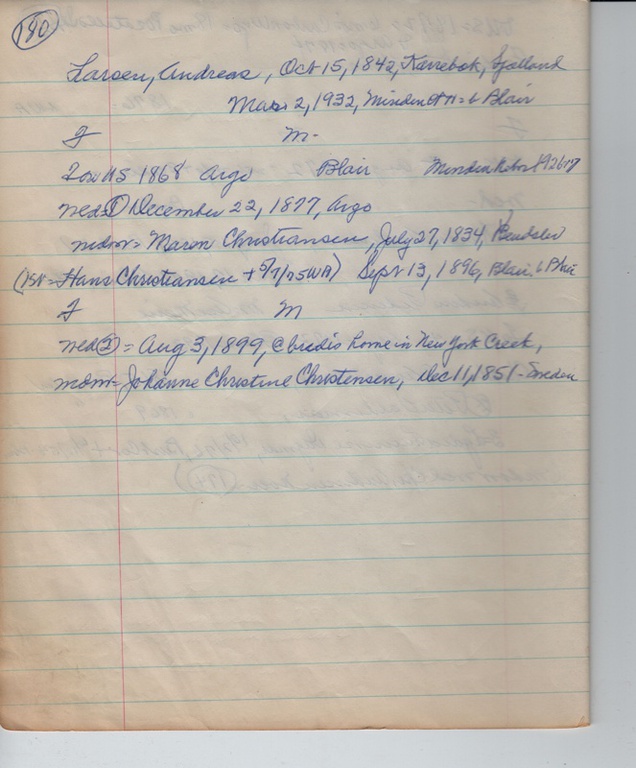 180
Larsen, Andreas, Oct 15, 1842, Karrebok, Sjalland
Mar 2, 1932, Minden b Blair
F M-
To US 1868 Argo Blair Minden Nebr
wed ① December 22, 1877, Argo
mdmr = Maren Christiansen, July 27, 1834,
= Hans Christiansen + Sept 13, 1896, Blair, b Blair
F M
wed ② = Aug 3, 1899, @ brides home in New York Creek,
mdmr = Johanne Christine Christensen, Dec 11, 1851 - Sweden